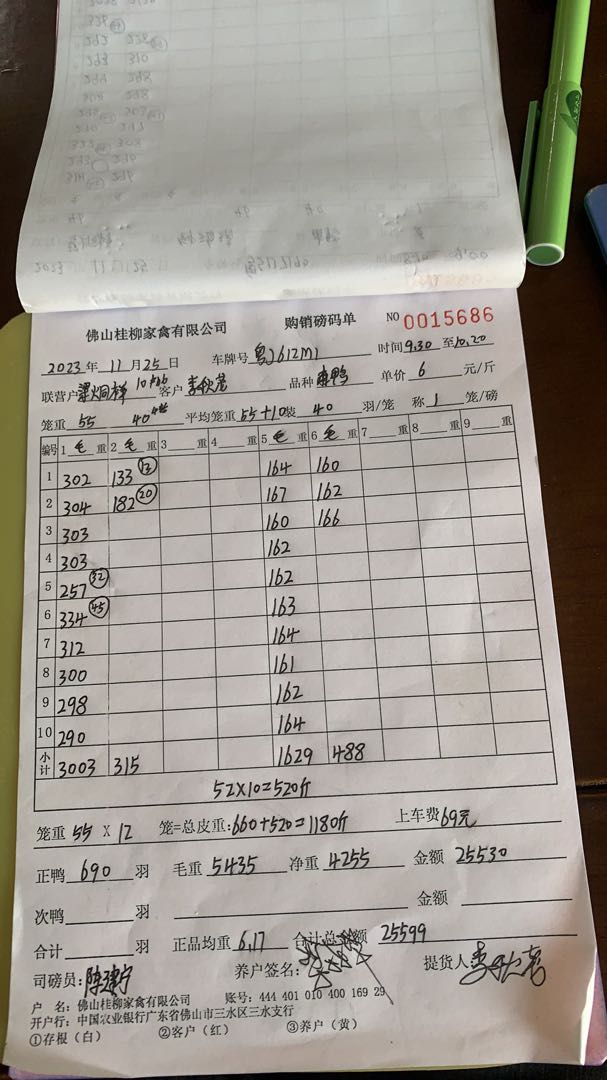 佛山桂柳家禽有限公司 购销磅码单 NO 0015686
2023年11月25日 车牌号 粤J612M1 时间9.30至10.20
联营户 客户 李 品种 鸭 单价 6 元/斤
笼重 55 40 平均笼重55+10装 40 羽/笼 称 1 笼/磅
编号 1 毛 重 2 毛 重 3 重 4 重 5 毛 重 6 毛 重 7 重 8 重 9 重
1 302 133 13 164 160
2 304 182 20 167 162
3 303 160 166
4 303 162
5 257 32 162
6 334 45 163
7 312 164
8 300 161
9 298 162
10 290 164
小计 3003 315 1629 488
52X10=520斤
笼重 55 X 12 笼=总皮重:660+520=1180斤 上车费69元
正鸭 690 羽 毛重 5435 净重 4255 金额 25530
次鸭 羽 金额
合计 羽 正品均重 6.17 合计总金额 25599
司磅员: 陈 养户签名: 提货人
户 名: 佛山桂柳家禽有限公司 账号: 444 401 010 400 169 29
开户行: 中国农业银行广东省佛山市三水区三水支行
①存根（白） ②客户（红） ③养户（黄）